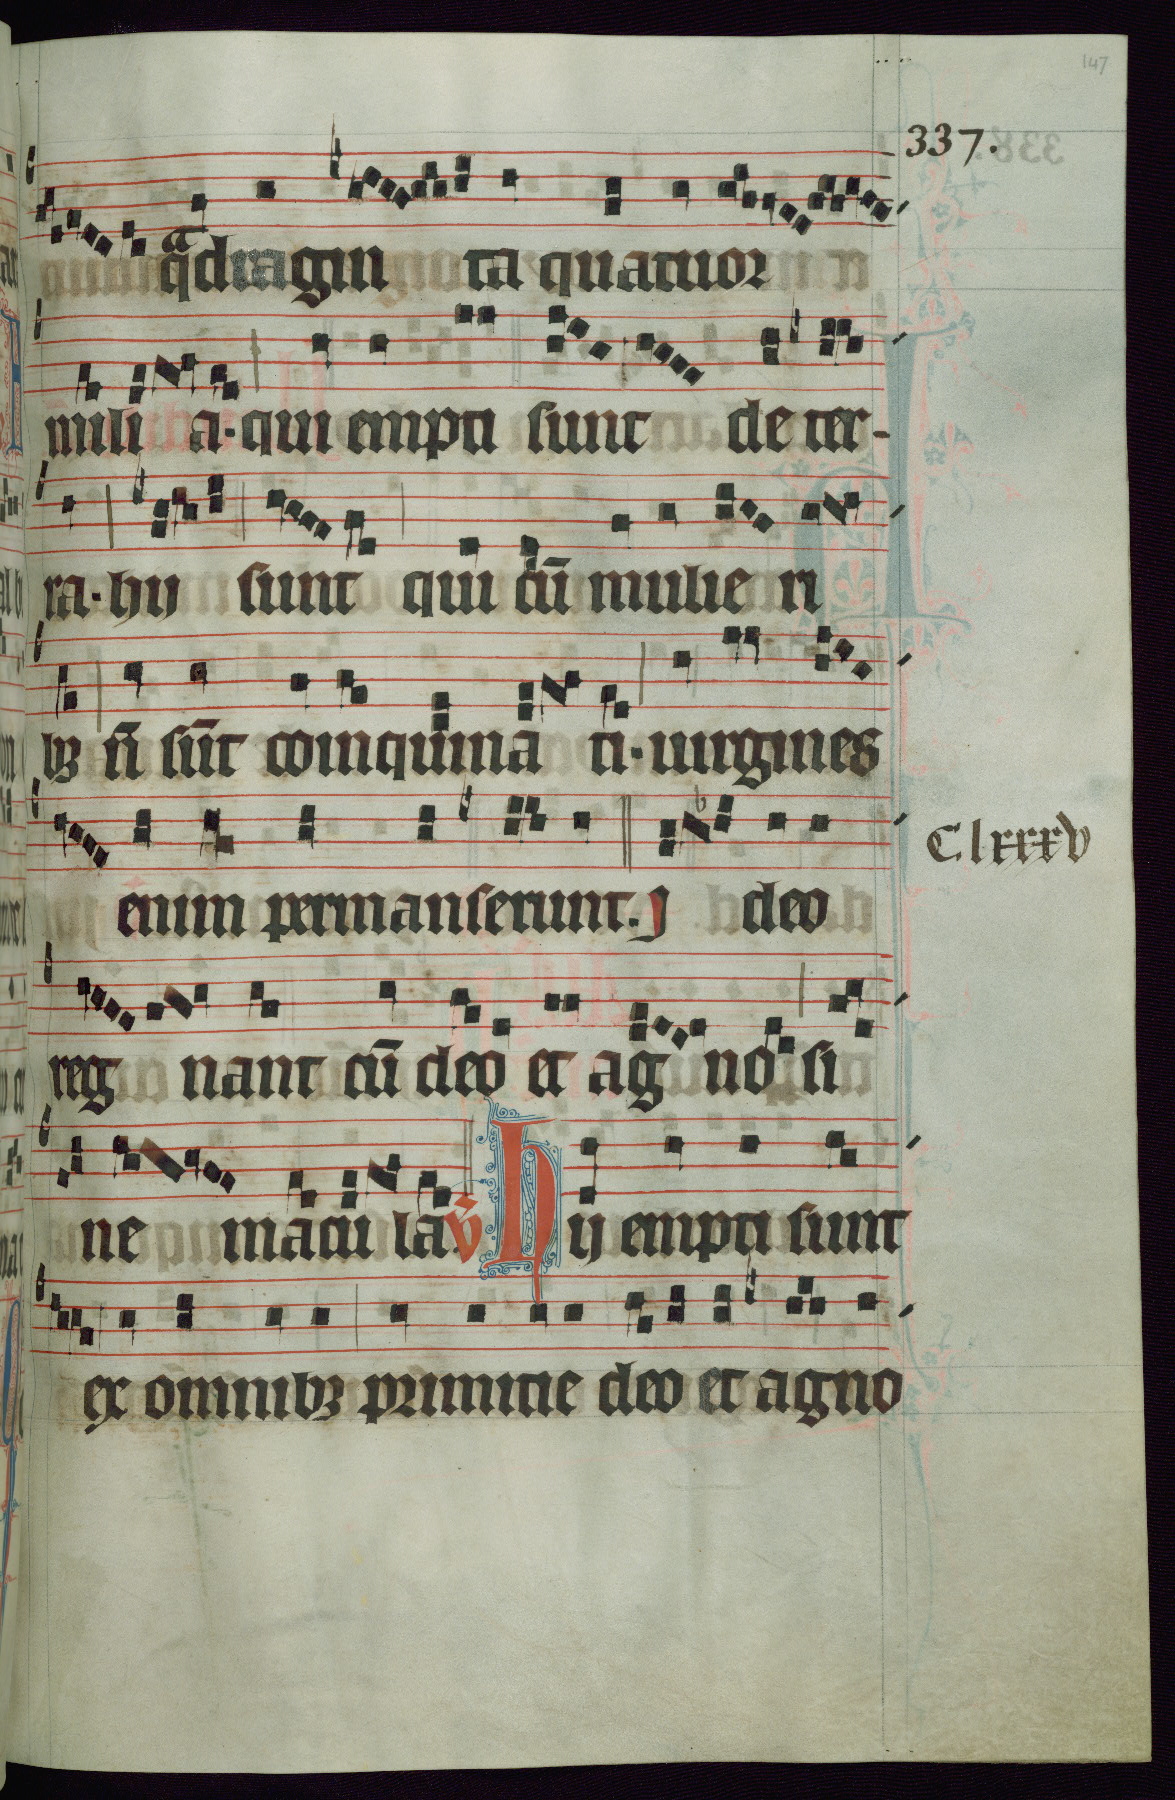 147
337.
qᵃdragin ta quatuor
mili a · qui empti sunt de ter-
ra · hij sunt qui cū mulie ri
bꝫ nͦ sūt coinquina ti · uirgines
Clxxxv
enim permanserunt. J deo
reg nant cū deo et ag no si
ne macu la v̄ Hij empti sunt
ex omnibꝫ primitie deo et agno